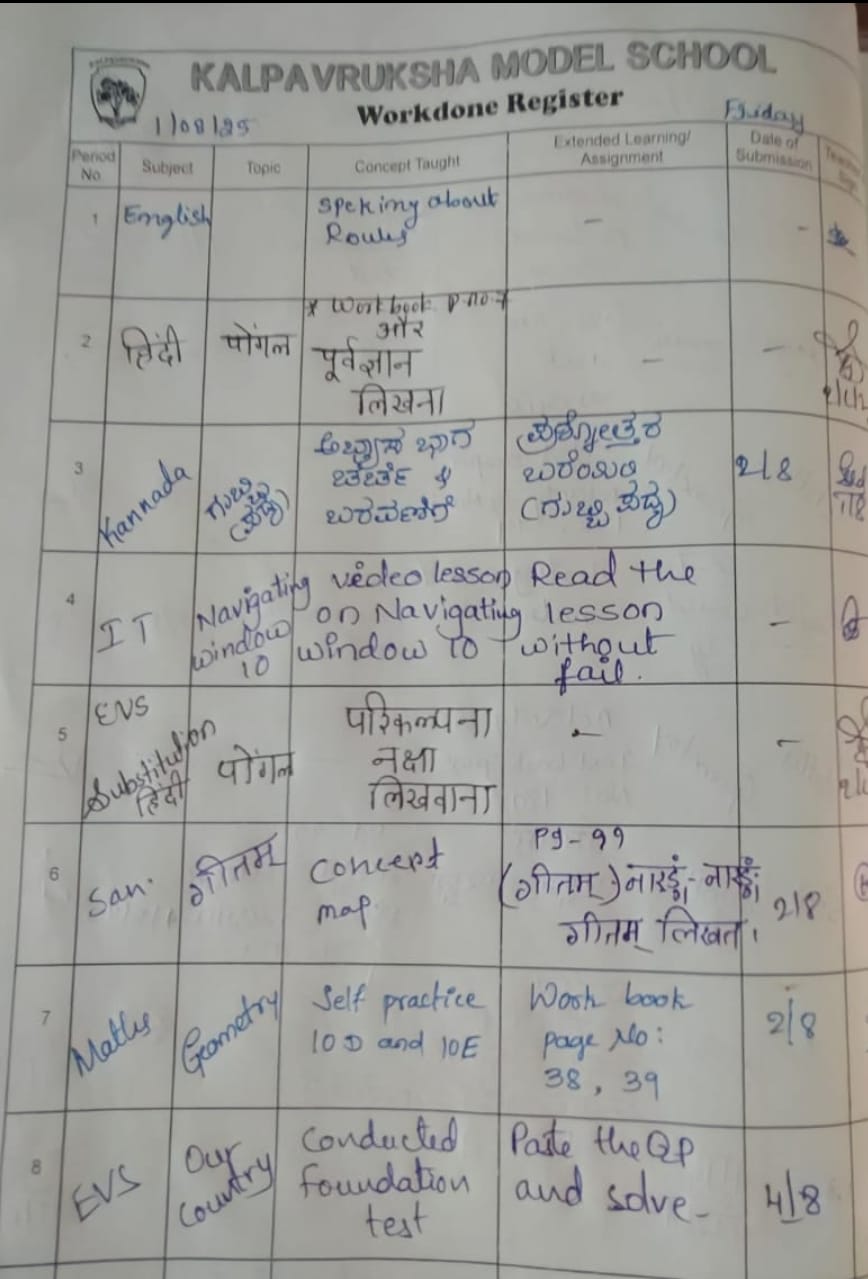 KALPAVRUKSHA MODEL SCHOOL
Workdone Register
1/08/25
Friday
Period No.
Subject
Topic
Concept Taught
Extended Learning/ Assignment
Date of Submission
1
English
Speking about
Roules
-
-
2
हिंदी
पोंगल
* Workbook P no 7
और
पूर्वज्ञान
लिखना
-
-
3
Kannada
ಗುಬ್ಬಿ
(ಪದ್ಯ)
ಅಭ್ಯಾಸ ಭಾಗ
ಚರ್ಚೆ &
ಬರವಣಿಗೆ
ಪ್ರಶ್ನೋತ್ತರ
ಬರೆಯಿರಿ
(ಗುಬ್ಬಿ ಪದ್ಯ)
2/8
4
IT
Navigating
window
10
video lesson
on Navigating
window 10
Read the
lesson
without
fail.
-
5
EVS
Substitution
हिंदी
पोंगल
परिकल्पना
नक्षा
लिखवाना
-
-
6
San.
गीतम्
Concept
map
Pg - 99
(गीतम्) नारङ्गं - नारङ्गं
गीतम् लिखत।
2/8
7
Maths
Geometry
Self practice
10 D and 10E
Work book
page No:
38, 39
2/8
8
EVS
Our
Country
Conducted
foundation
test
Paste the QP
and solve-
4/8